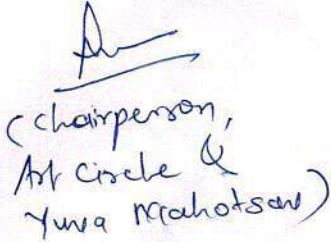 (Chairperson,
Art Circle &
Yuva Mahotsav)